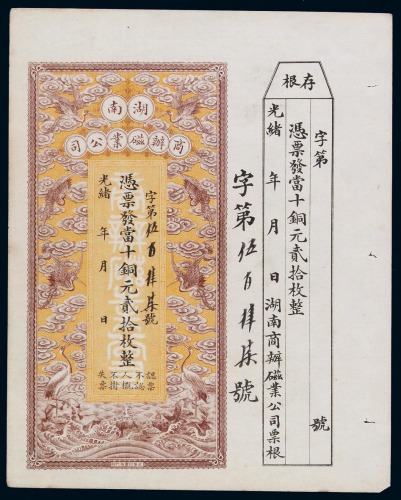 存根
字第　　號
憑票發當十銅元貳拾枚整
光緒　年　月　日湖南商辦磁業公司票根
字第伍百肆柒號
湖南
商辦磁業公司
字第伍百肆柒號
憑票發當十銅元貳拾枚整
光緒　年　月　日
認票
不認人
失票不掛